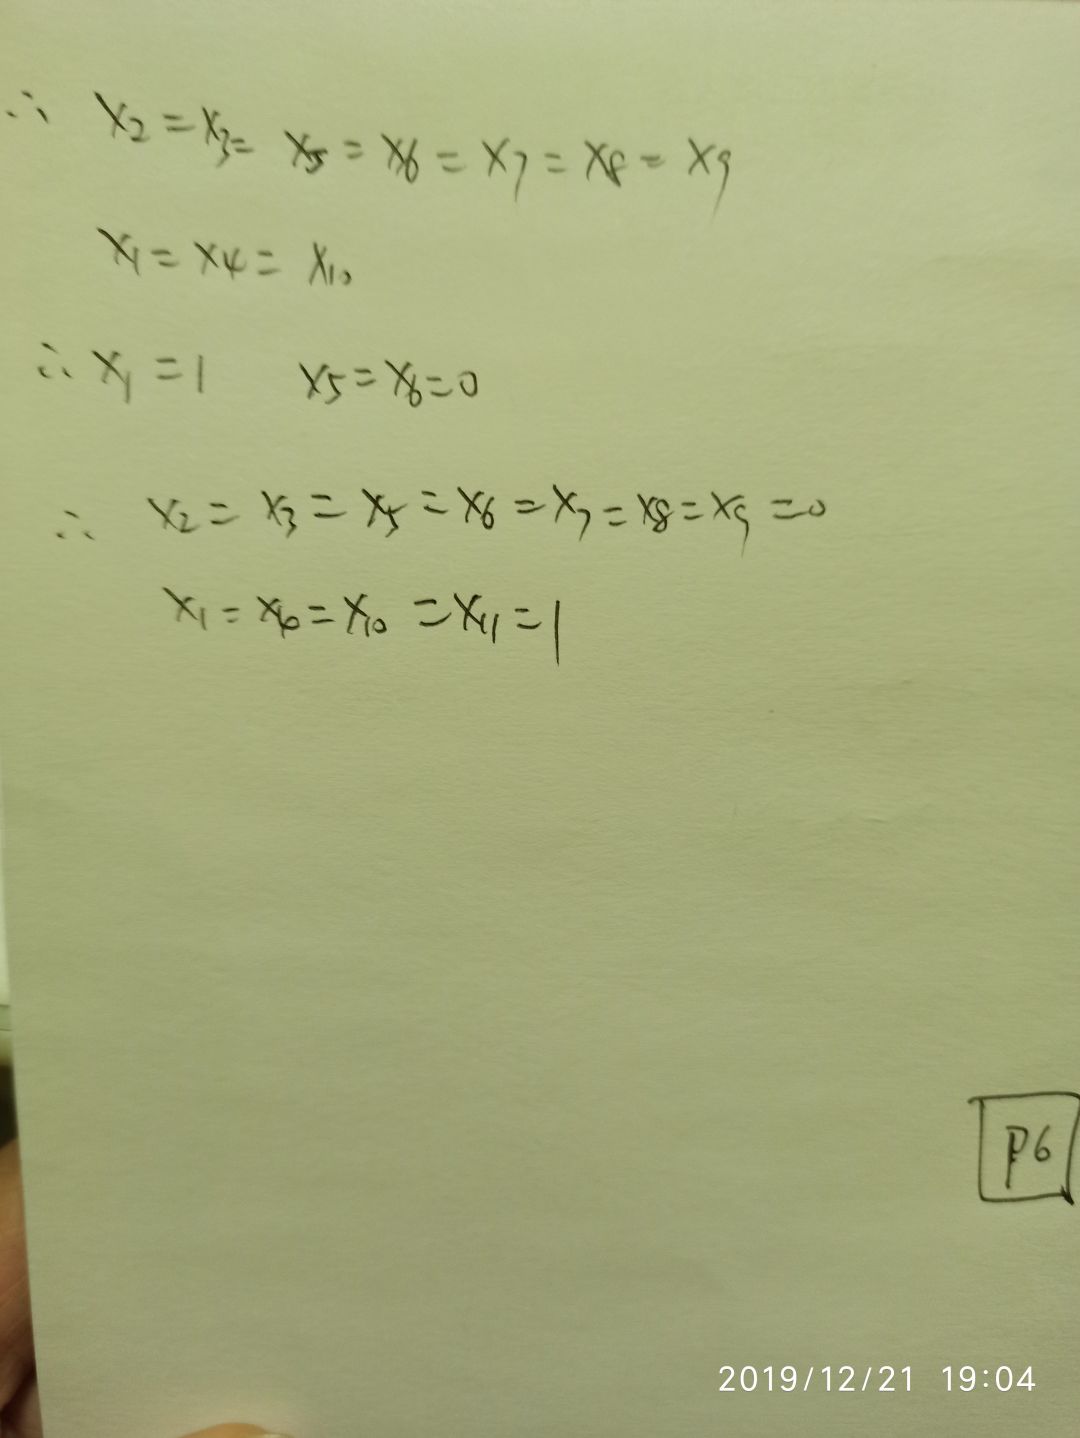 ∴ x2 = x3 = x5 = x6 = x7 = x8 = x9
x1 = x4 = x10
∴ x1 = 1 x5 = x6 = 0
∴ x2 = x3 = x5 = x6 = x7 = x8 = x9 = 0
x1 = = x10 = x11 = 1
P6
2019/12/21 19:04